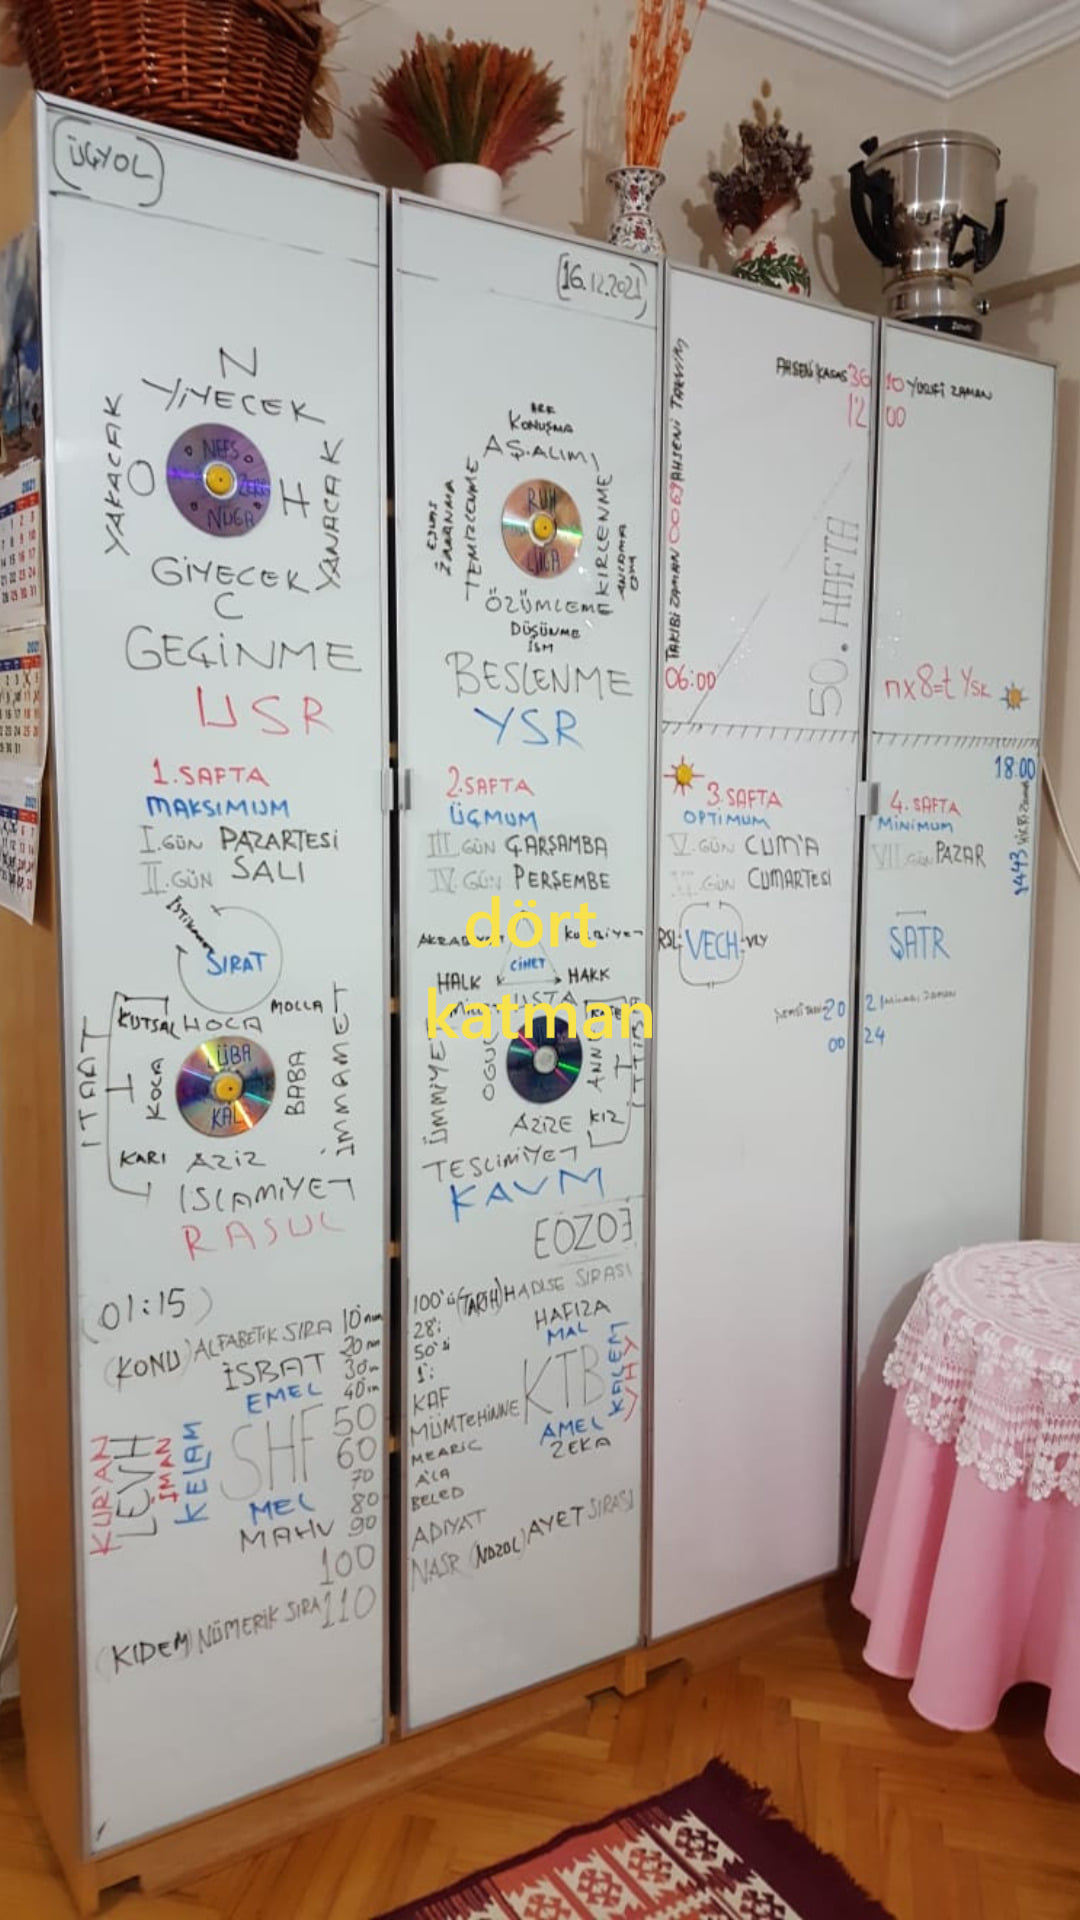 ÜÇYOL
N
YİYECEK
YAKACAK
O
NEFS
ZERR
NÜGA
H
YANACAK
GİYECEK
C
GEÇİNME
USR
1.SAFTA
MAKSIMUM
I.GÜN PAZARTESİ
II.GÜN SALI
İSTİKAMET
SIRAT
KUTSAL HOCA
MOLLA
İTAAT
KOCA
LÜBA
KAL
BABA
İMMAMET
KARI AZİZ
ISLAMİYET
RASUL
(01:15)
(KONU) ALFABETİK SIRA 10
İSBAT 20
EMEL 30
40
SHF 50
60
KUR'AN
LEVH
İMAN
KELAM
70
MEL 80
MAHV 90
100
(KIDEM) NÜMERİK SIRA 110
(16.12.2021)
KONUŞMA
AŞ.ALIMI
TEMİZLENME
RUH
KİRLENME
ÖZÜMLEME
DÜŞÜNME
İSM
BESLENME
YSR
2.SAFTA
ÜÇMUM
III.GÜN ÇARŞAMBA
IV.GÜN PERŞEMBE
dört
CİHET
HALK
HAKK
katman
USTA
ÜMMİYET
OĞUL
KIZ
AZİZE
TESLİMİYET
KAVM
EOZOE
100'ü (TARİH) HADİSE SIRASI
28'i
50'si
1'i
HAFIZA
MAL
KTB
KALEM
VHY
KAF
MÜMTEHİNNE
AMEL
MEARİC
ZEKA
A'LA
BELED
ADIYAT
NASR (NÜZÛL) AYET SIRASI
AHSENİ KASAS 36
12
TAKİBİ ZAMAN 00 63 AHSENİ TAKVİM
06:00
50. HAFTA
3.SAFTA
OPTIMUM
V.GÜN CUM'A
VI.GÜN CUMARTESİ
RSL VECH VLY
20
00
10 YUSUFİ ZAMAN
00
nx8=t YSR
18:00
4.SAFTA
MİNİMUM
VII.GÜN PAZAR
1443
ŞATR
21
24